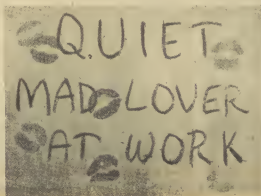 QUIET
MAD LOVER
AT WORK